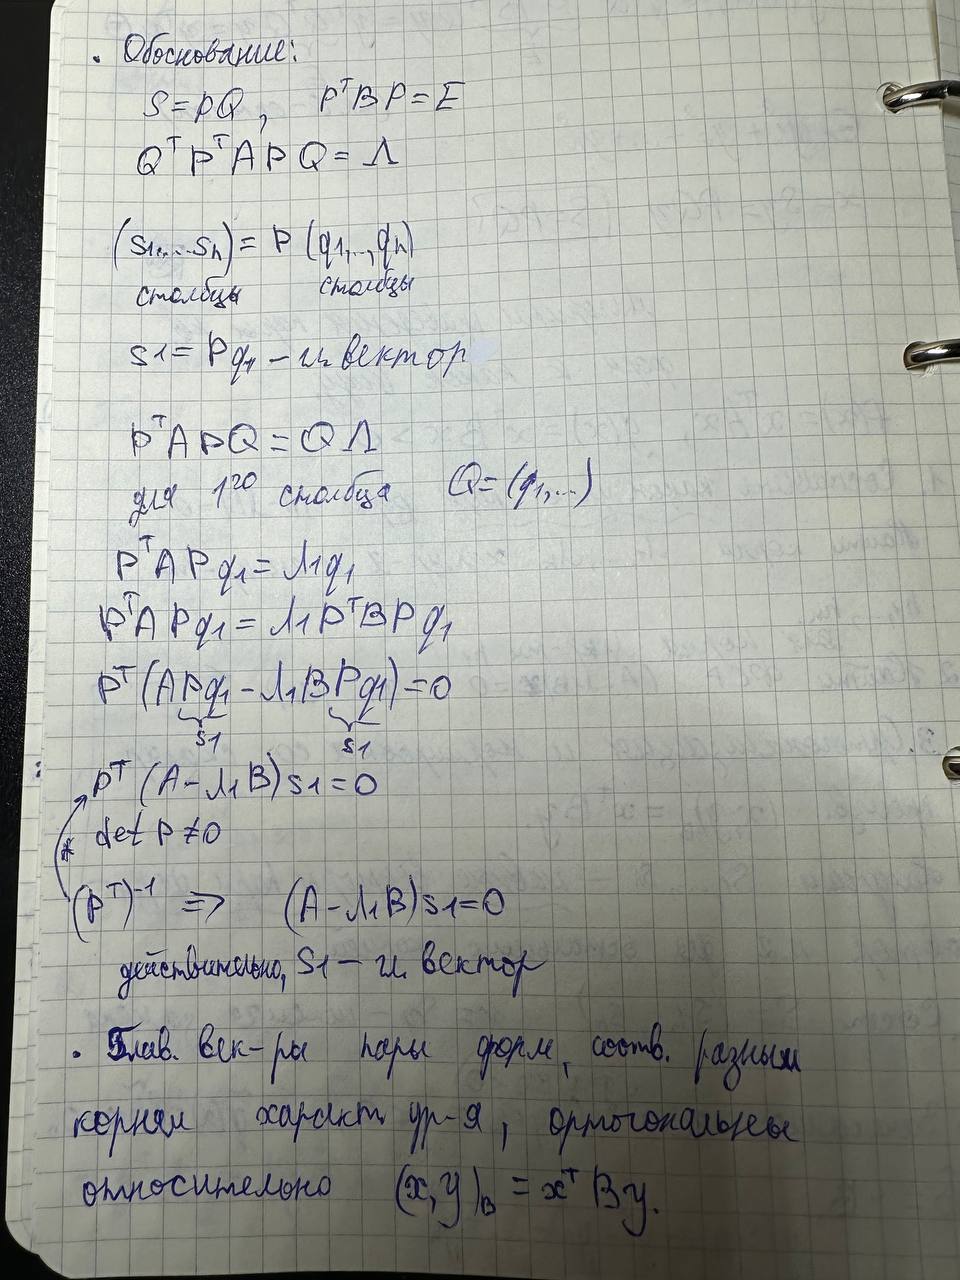 . Обоснование:
S = PQ, PᵀBP = E
QᵀPᵀAPQ = Λ
(s1,...sn) = P (q1,..,qn)
столбцы столбцы
s1 = Pq1 – вектор
PᵀAPQ = QΛ
для 1го столбца Q = (q1,...)
PᵀAPq1 = λ1q1
PᵀAPq1 = λ1PᵀBPq1
Pᵀ(APq1 – λ1BPq1) = 0
s1 s1
Pᵀ(A – λ1B)s1 = 0
det P ≠ 0
*
(Pᵀ)⁻¹ => (A – λ1B)s1 = 0
действительно, s1 – вектор
. Глав. век-ры пары форм, соотв. разным
корням характ. ур-я, ортогональны
относительно (x,y)B = xᵀBy.